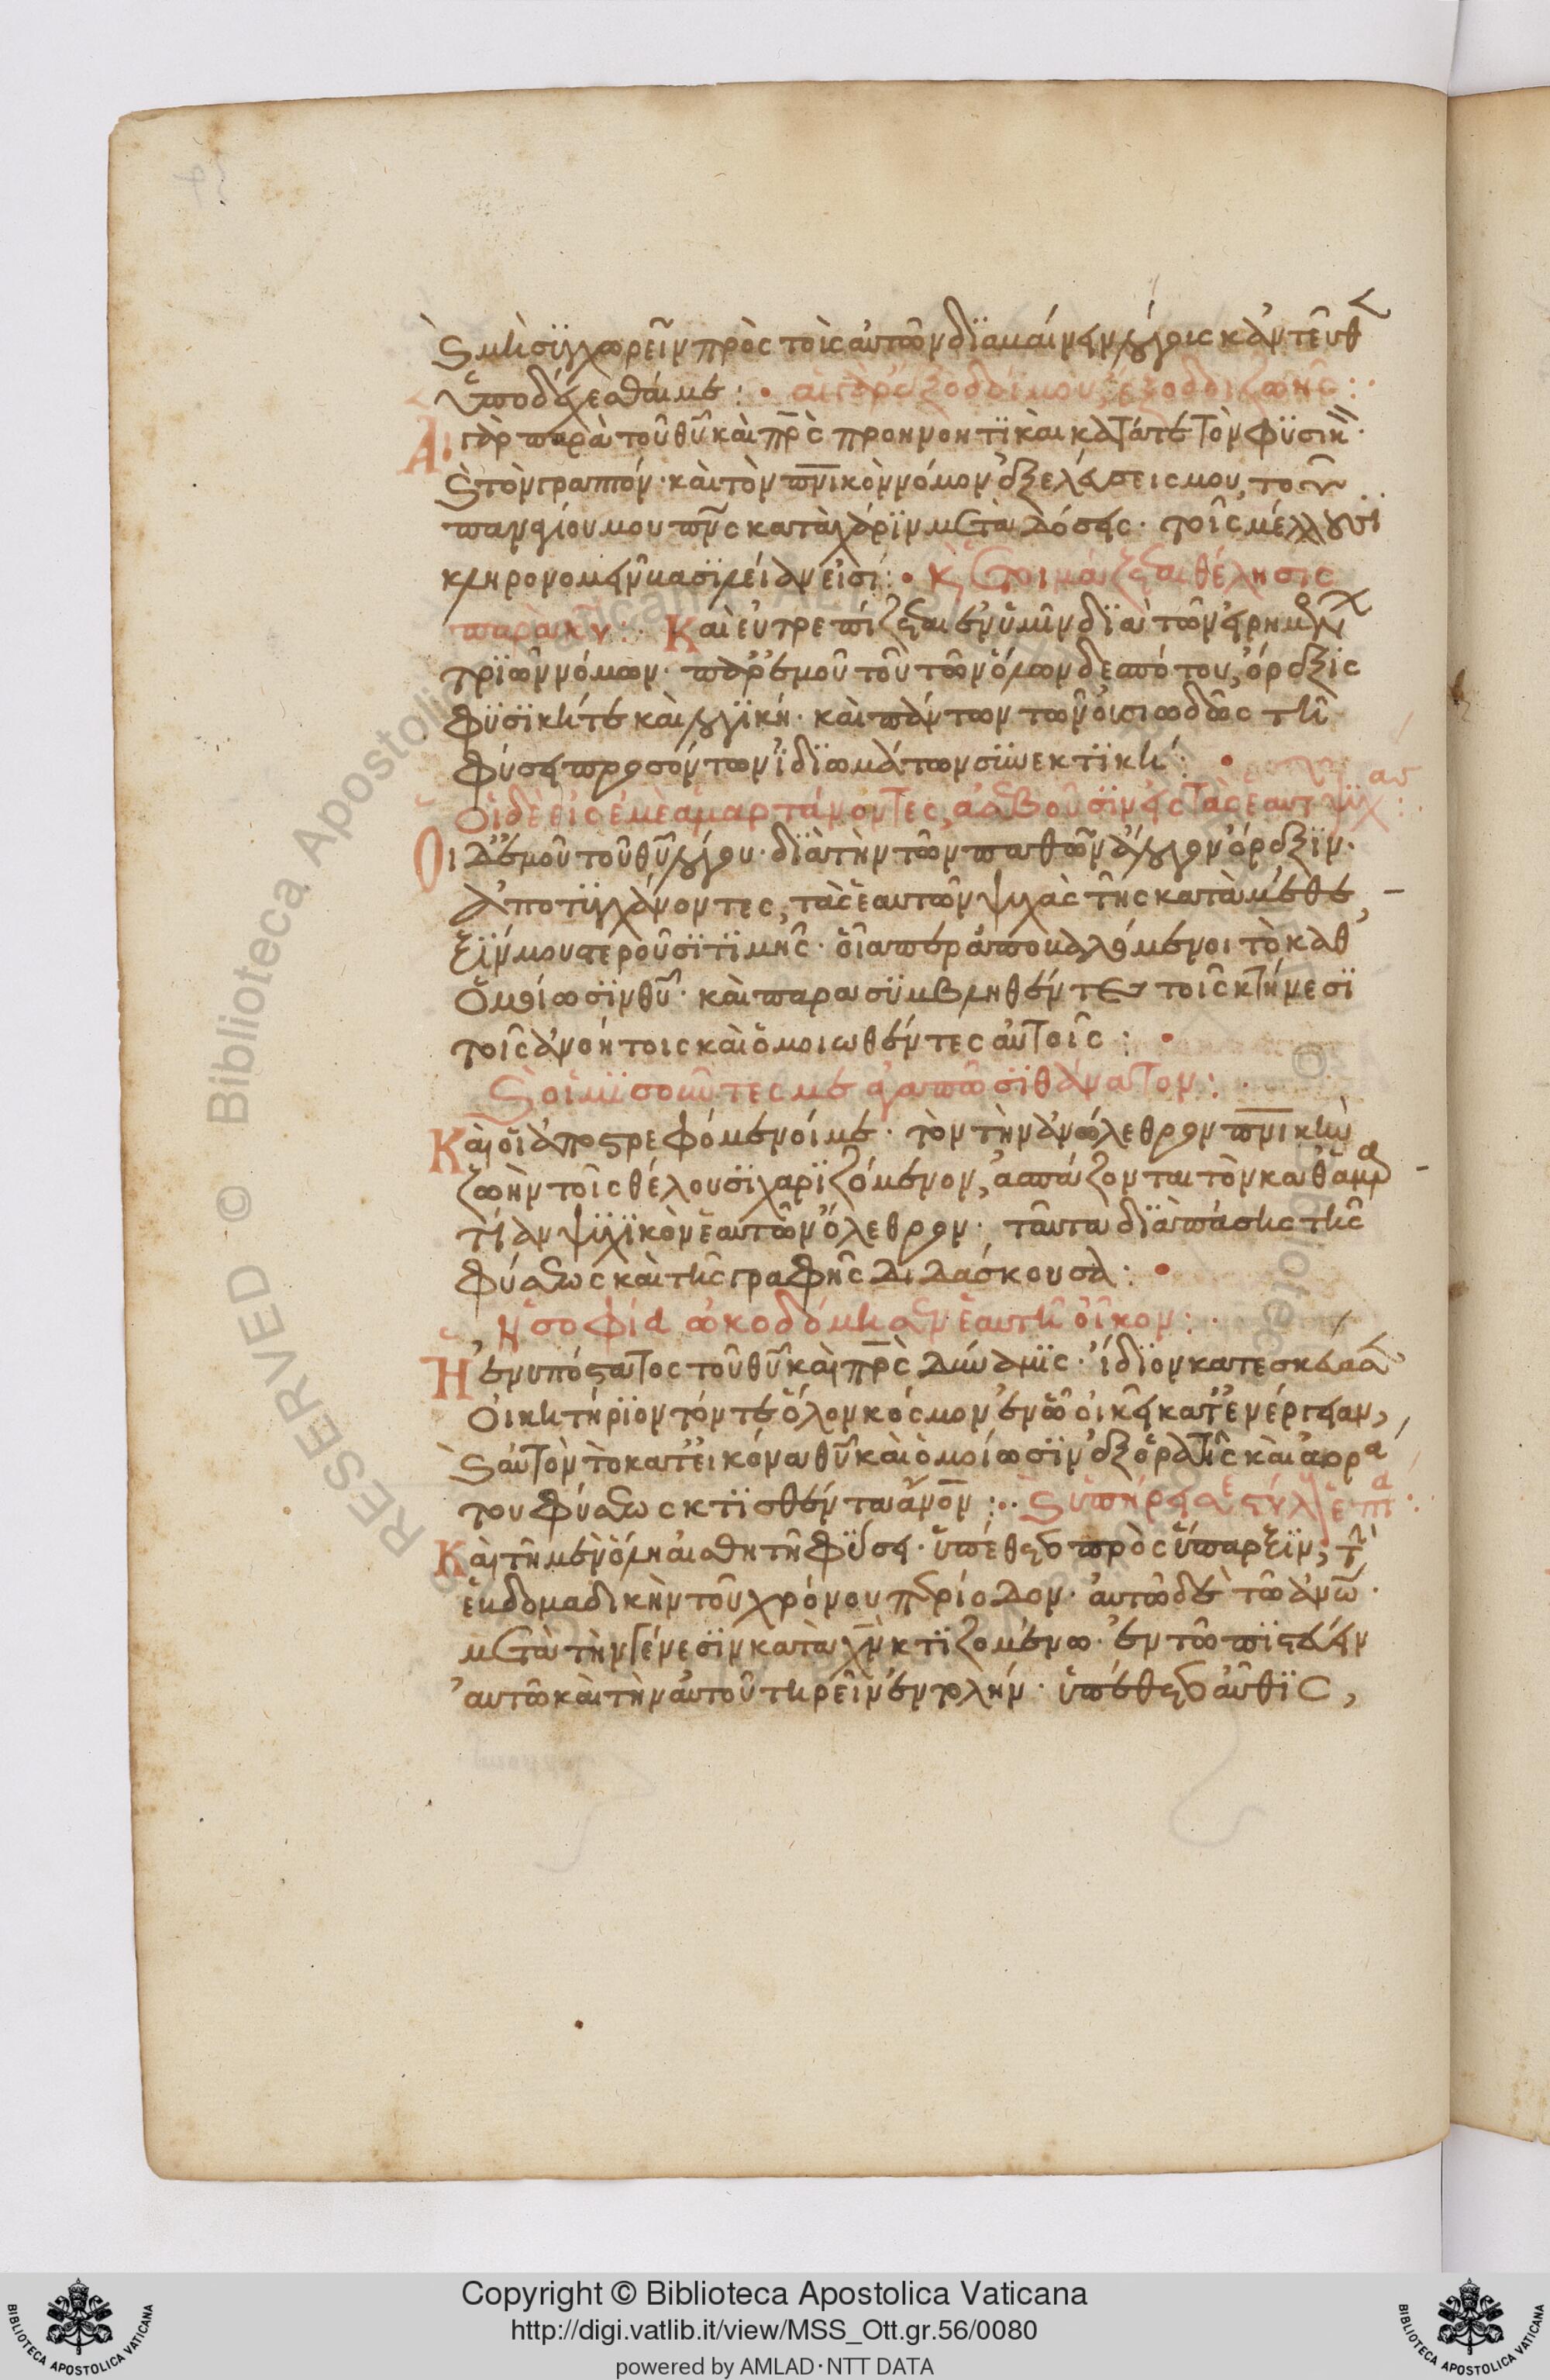 καὶ μὴ συγχωρεῖν πρὸς τοῖς αὐτῶν διαμαίνειν λόγοις κἀντεῦθεν
ὑποδέχεσθαί με: • αἱ γὰρ ἔξοδοί μου, ἔξοδοι ζωῆς:
Αἱ γὰρ παρὰ τοῦ θυ καὶ πρς προνοητικαὶ κατά τε τὸν φυσικὸν
καὶ τὸν γραπτόν· καὶ τὸν πνικὸν νόμον ἐξελεύσεις μου, τοῦ
παναγίου μου πνς κατὰ χάριν μεταδόσεις· τοῖς μέλλουσι
κληρονομεῖν βασιλείαν εἰσί: • κ ἑτοιμάζεται θέλησις
παρὰ κυ: Καὶ εὐτρεπίζεται ἐν ὑμῖν διὰ τῶν εἰρημένων
τριῶν νόμων· παρ' ἐμοῦ τοῦ τῶν ὅλων δεσπότου, ὄρεξις
φυσική τε καὶ λογική· καὶ πάντων τῶν οὐσιωδῶς τῇ
φύσει προσόντων ἰδιωμάτων συνεκτική: •
Οἱ δὲ εἰς ἐμὲ ἁμαρτάνοντες, ἀσεβοῦσιν εἰς τὰς ἑαυτ ψυχάς:
Οἱ δ' ἐμοῦ τοῦ θυ λόγου· διὰ τὴν τῶν παθῶν ἄλογον ὄρεξιν·
ἀποτυγχάνοντες, τὰς ἑαυτῶν ψυχὰς τῆς κατὰ μέθε
ξίν μου στεροῦσι τιμῆς· οἷάπερ ἀποβαλόμενοι τὸ καθ'
ὁμοίωσιν θυ· καὶ παρασυμβληθέντες τοῖς κτήνεσι
τοῖς ἀνοήτοις καὶ ὁμοιωθέντες αὐτοῖς: •
καὶ οἱ μισοῦντες με ἀγαπῶσι θάνατον:
Καὶ οἱ ἀποστρεφόμενοί με· τὸν τὴν ἀνώλεθρον πνικὴν
ζωὴν τοῖς θέλουσι χαριζόμενον, ἀσπάζονται τὸν καθ' ἁμαρ
τίαν ψυχικὸν ἑαυτῶν ὄλεθρον· ταῦτα διὰ πάσης τῆς
φύσεως καὶ τῆς γραφῆς διδάσκουσα: •
ἡ σοφία ᾠκοδόμησεν ἑαυτῇ οἶκον:
Ἡ ἐνυπόστατος τοῦ θυ καὶ πρς δύναμις· ἴδιον κατεσκεύασεν
οἰκητήριον τόν τε ὅλον κόσμον ἐν ᾧ οἰκεῖ κατ' ἐνέργειαν,
καὶ αὐτὸν τὸ κατ' εἰκόνα θυ καὶ ὁμοίωσιν ἐξ ὁρατῆς καὶ ἀορά
του φύσεως κτισθέντα ἄνον: • καὶ ὑπήρεισε στύλ ἑπτά:
Καὶ τῇ μὲν ὅλῃ αἰσθητῇ φύσει· ὑπέθετο πρὸς ὕπαρξιν, τὴν
ἑβδομαδικὴν τοῦ χρόνου περίοδον· αὐτῷ δὲ τῷ ἀνῳ·
μετὰ τὴν γένεσιν κατὰ χν κτιζομένῳ· ἐν τῷ πιστεύειν
αὐτῷ καὶ τὴν αὐτοῦ τηρεῖν ἐντολήν· ὑπέθετο αὖθις,
Copyright © Biblioteca Apostolica Vaticana
http://digi.vatlib.it/view/MSS_Ott.gr.56/0080
powered by AMLAD·NTT DATA